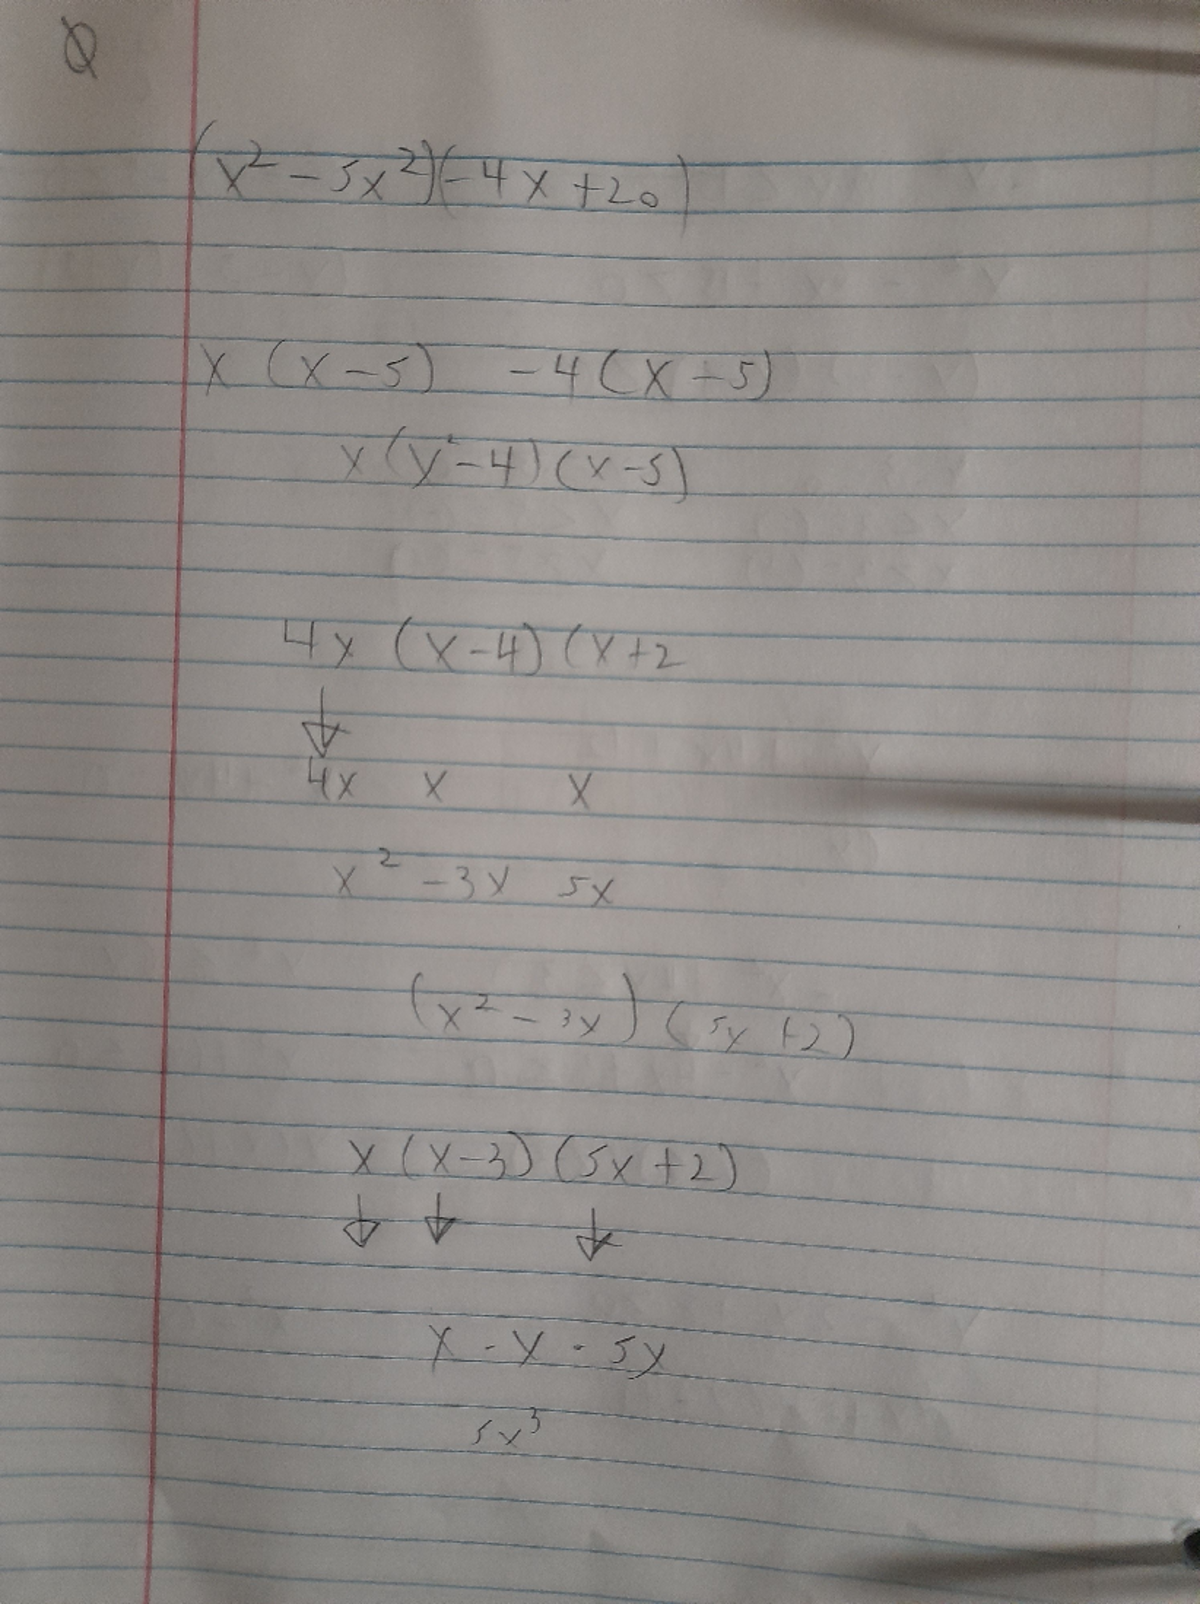 (x² - 5x²)(-4x +20)
x (x-5) -4(x-5)
x(x²-4)(x-5)
4x (x-4)(x+2
4x x x
x² -3x 5x
(x² - 3x) (5x +2)
x (x-3)(5x+2)
x · x · 5x
5x³